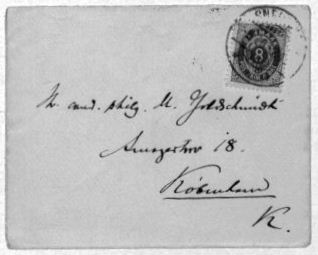 8
Hr. cand. philg. M. Goldschmidt
Amagertorv 18.
København
K.